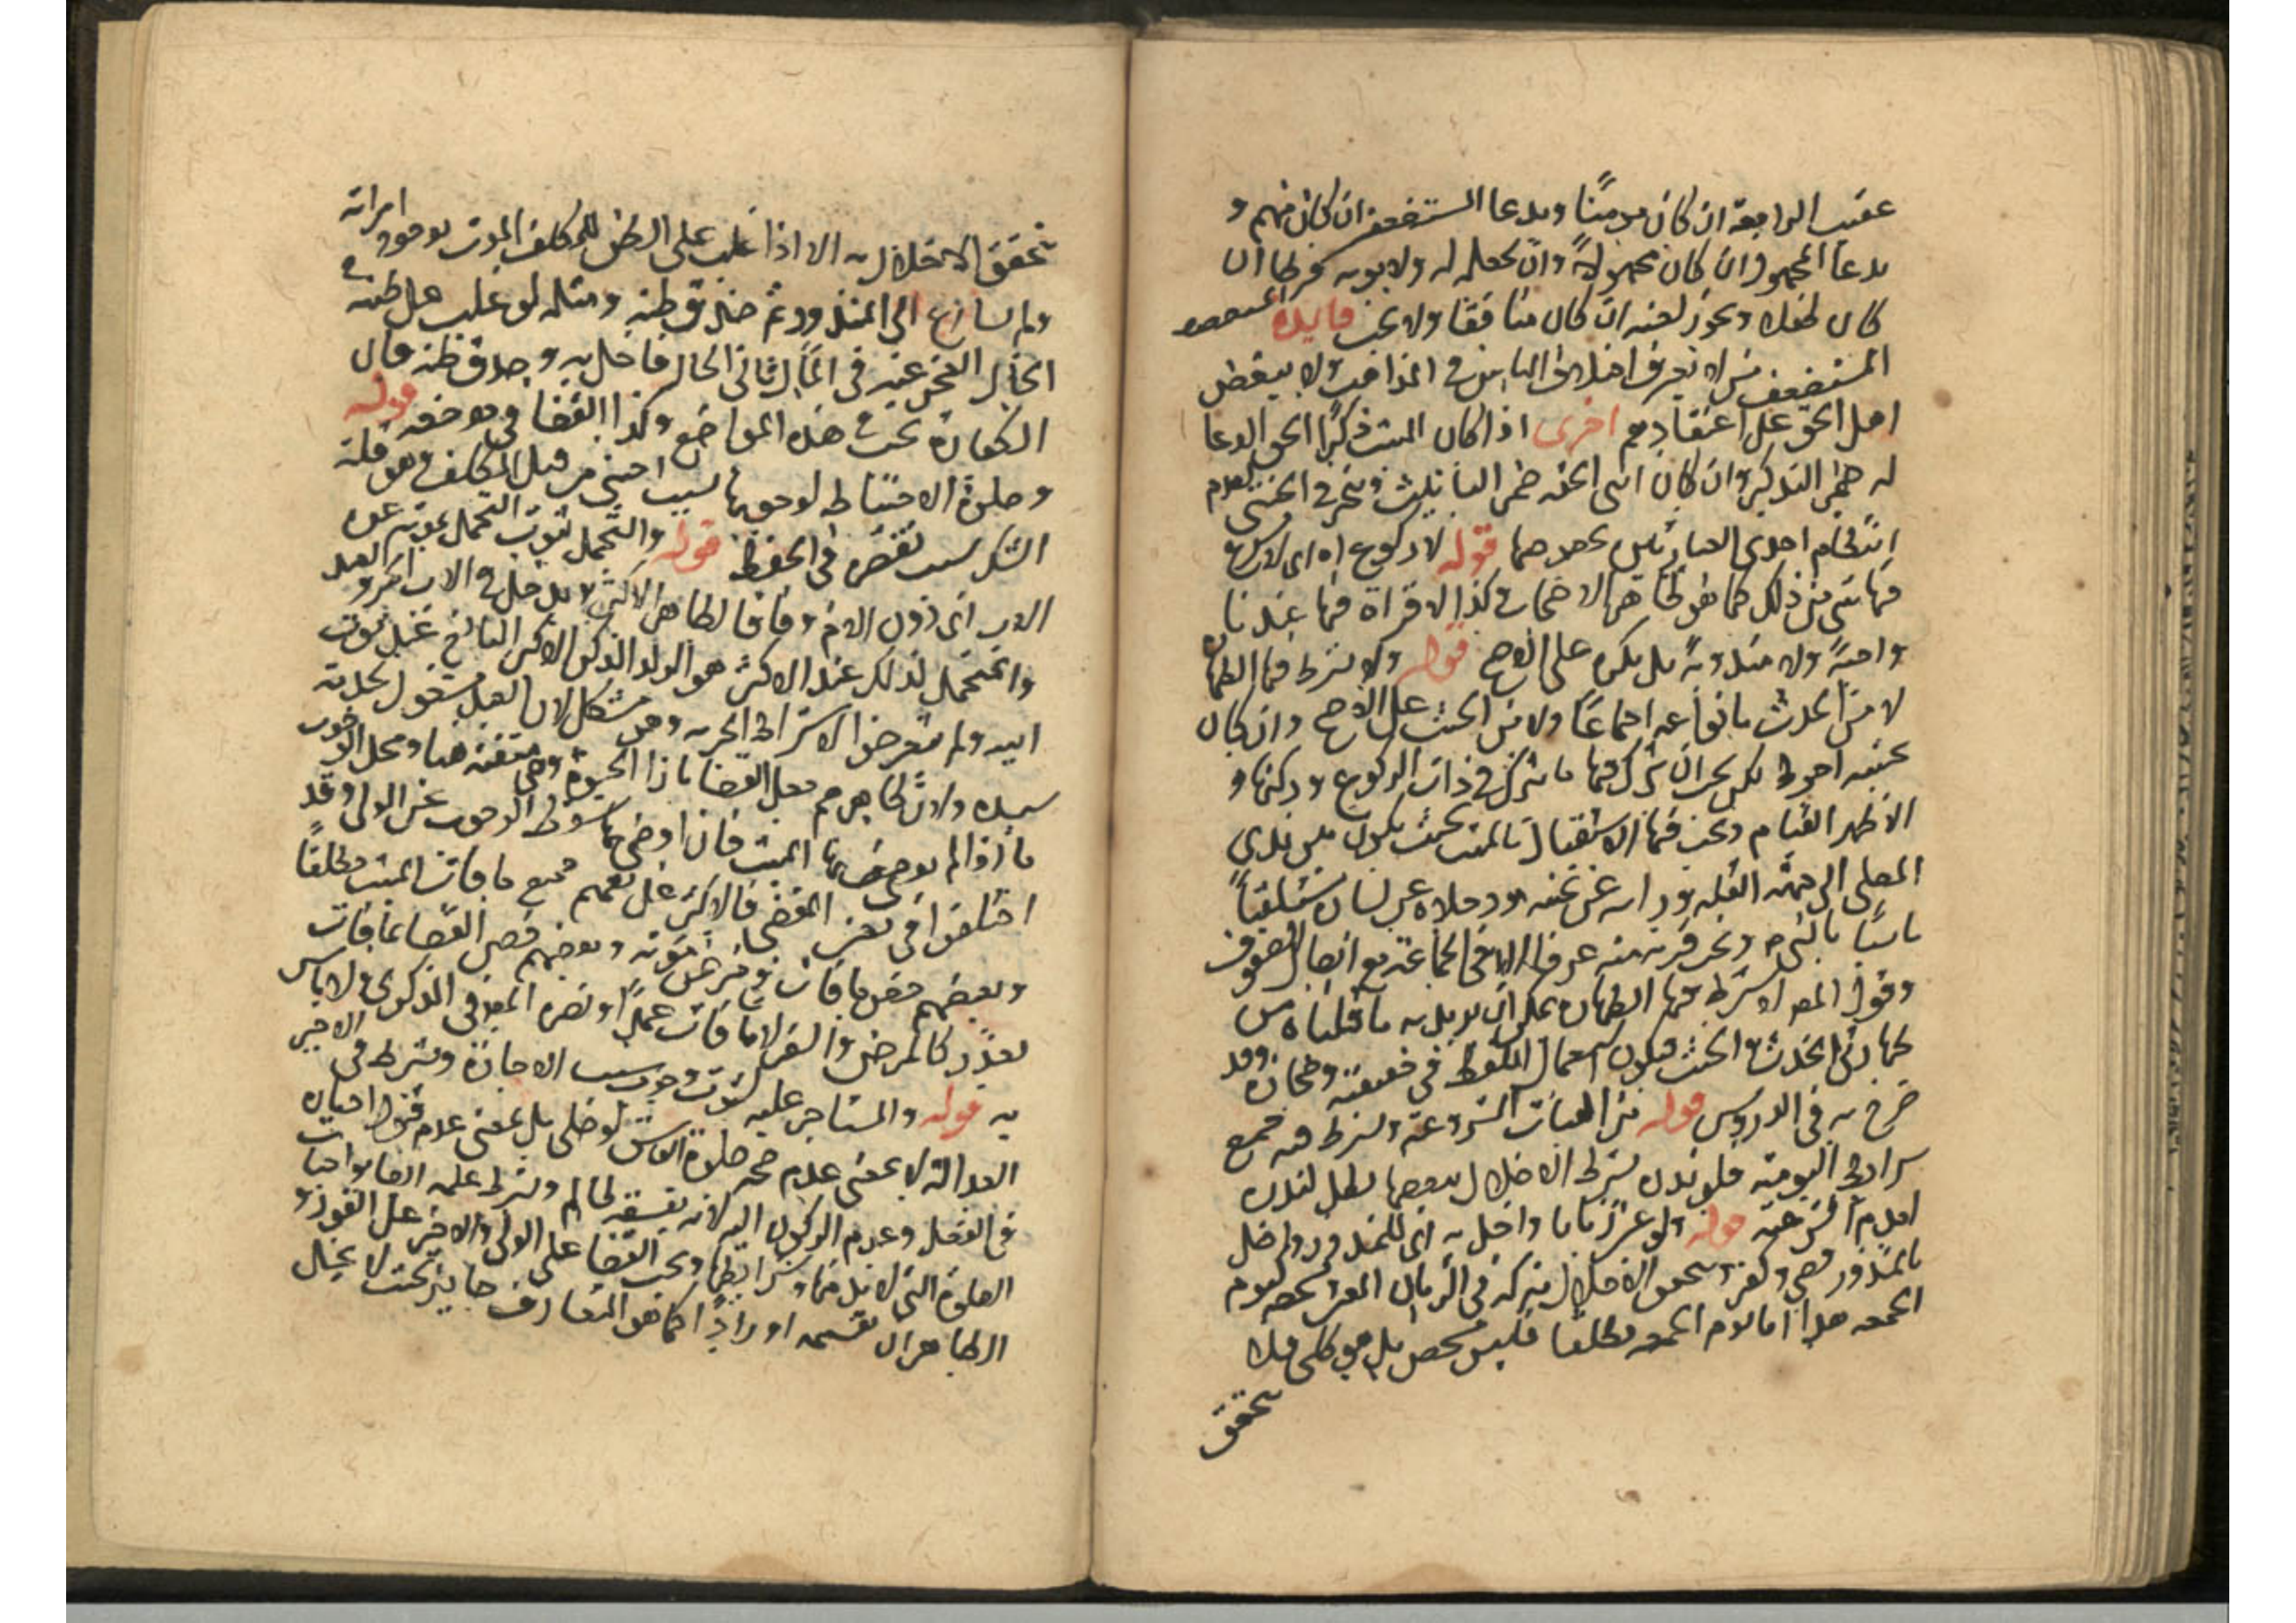 عقيب الرابعة ان كان مومنًا وبدعا المستضعفين ان كان منهم و
بدعا المجهول ان كان مجهولاً وان يجعله له ولابويه فرطا ان
كان طفلا ويجوز لعنه ان كان منافقا ولا يجب فايدة
المستضعف من لا يعرف اختلاف الناس في المذاهب ولا يبغض
اهل الحق على اعتقادهم اخرى اذا كان الميت ذكرًا الحق الدعا
له ضمير التذكير وان كان انثى الحقه ضمير التانيث وتخير في الخنثى لعدم
احدى العبارتين قوله لا ركوع اه اى لا يشرع
فيها شى من ذلك كما هو ظاهر الاضحاب وكذا لا قراة فيها عندنا
واجبةً ولا مندوبةً بل يكره على الاصح قوله ولا يشترط فيها الطهارة
لا من الحدث بانواعه اجماعًا ولا من الخبث على الاصح وان كان
تجنبه احوط لكن يجب ان يترك فيها ما يترك في ذات الركوع وركنها و
الاظهر القيام ويجب فيها الاستقبال بالميت بحيث يكون بين يدى
المصلى الى جهة القبلة وراسه عن يمينه ورجلاه عن يساره مستلقياً
ويجب قربه منه عرفا الا في الجماعة مع اتصال الصفوف
وقول المص لا يشترط فيها الطهارة يمكن ان يريد به ما قلناه من
طهارتى الحدث والخبث فيكون استعمال اللفظ في حقيقته ومجازه وقد
صرح به في الدروس قوله من الهيات المشروعة ويشترط فيه جميع
شرايط اليومية فلو نذره بشرط الاخلال ببعضها بطل لنذره
قوله ولو عين زمانا واخل به اى المنذور ولم يصل
المنذور قضى وكفر ويتحقق الاخلال بتركه في الزمان المعين شخصه كيوم
الجمعة هذا اما يوم الجمعة مطلقا فليس شخص بل هو كلى فلا
يتحقق
يتحقق الاخلال به الا اذا غلب على الظن للمكلف الموت بوجود امراته
ولم يسارع الى المنذور ثم صدق ظنه ومثله لو غلب على ظنه في
الحال العجز عنه في الثانى الحال فاخل به وصدق ظنه فان
الكفارة تجب في هذه المواضع وكذا القضا في موضعه قوله
وصلوة الاحتياط لوجوبها بسبب اجنبى من قبل المكلف وهو قلة
الشك بسبب نقصره في الحفظ قوله والتحمل لثبوت التحمل بموته عن
الاب اى دون الام وفاقا لظاهر الاكثر ولا يدخل في الاب الجد
والمتحمل لذلك عند الاكثر هو الولد الذكر الاكبر البالغ عند موت
ابيه ولم يتعرضوا لاشتراط الحرية وهو مشكل لان العبد مشغول بخدمة
سيده ولان ظاهرهم جعل القضا بازا الحبوة وهى منتفية هنا ومحل الوجوب
ما اذا لم يوص بها الميت فان اوصى بها سقوط الوجوب عن الولى وقد
اختلفوا في تعيين المقضى فالاكثر على تعميم جميع ما فات الميت مطلقًا
وبعضهم خص ما فات في مرض موته وبعضهم خص القضا بما فات
بعذر كالمرض والسفر لا ما فات عمدًا ونصره المص في الذكرى ولا باس
به قوله والمستاجر عليه لثبوت وجوبه بسبب الاجارة ويشترط في الاجير
العدالة لا بمعنى عدم صحة صلوة الفاسق لو صلى بل بمعنى عدم قبول اخباره
في الفعل وعدم الركون اليه لانه بفسقه ظالم ويشترط علمه ايضا بواجبات
الصلوة التى لا بد منها وشرايطها ويجب القضا على الولى والاجير على الفور و
الظاهر ان تقسيمه اورادًا كما هو المتعارف جايز بحيث لا يخل